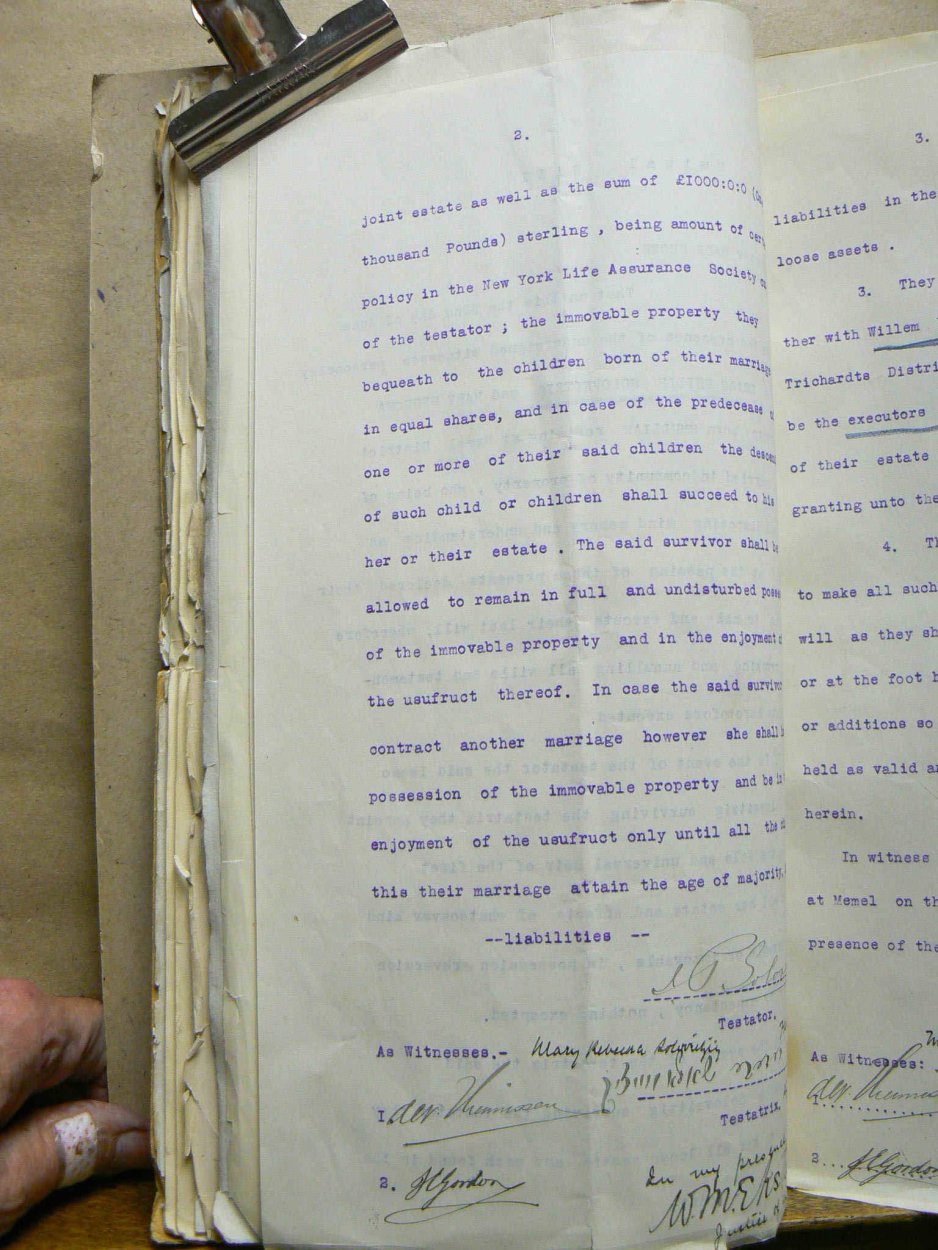 2.
joint estate as well as the sum of £1000:0:0 (On
thousand Pounds) sterling , being amount of cer
policy in the New York Life Assurance Society o
of the testator ; the immovable property they
bequeath to the children born of their marriag
in equal shares, and in case of the predecease o
one or more of their said children the desce
of such child or children shall succeed to his
her or their estate . The said survivor shall be
allowed to remain in full and undisturbed posse
of the immovable property and in the enjoyment o
the usufruct thereof. In case the said survivo
contract another marriage however she shall
possession of the immovable property and be in
enjoyment of the usufruct only until all the
this their marriage attain the age of majority,
--liabilities --
Testator.
As Witnesses.- Mary Rebecca
Testatrix.
I.
2. Gordon
In my presen
W.M.
Justice of
3.
liabilities in the
loose assets .
3. They
ther with Willem
Trichardts Distri
be the executors
of their estate
granting unto the
4. Th
to make all such
will as they sh
or at the foot h
or additions so
held as valid an
herein.
In witness
at Memel on th
presence of the
As Witnesses:
2... Gordon